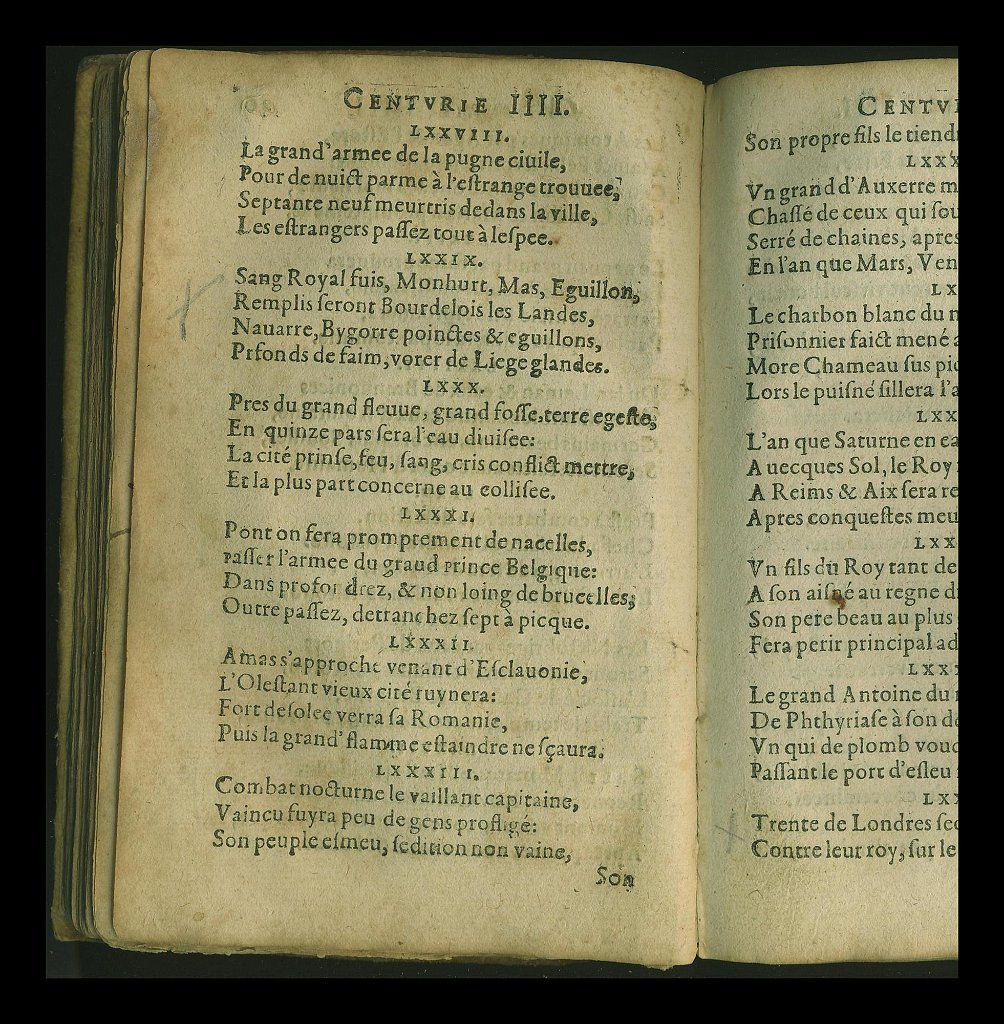 CENTVRIE IIII.
LXXVIII.
La grand'armee de la pugne ciuile,
Pour de nuict parme à l'eſtrange trouuee,
Septante neuf meurtris dedans la ville,
Les eſtrangers paſſez tout à leſpee.
LXXIX.
Sang Royal fuis, Monhurt, Mas, Eguillon,
Remplis ſeront Bourdelois les Landes,
Nauarre, Bygorre poinctes & eguillons,
Prfonds de faim, vorer de Liege glandes.
LXXX.
Pres du grand fleuue, grand foſſe, terre egeſte,
En quinze pars ſera l'eau diuiſee:
La cité prinſe, feu, ſang, cris conflict mettre,
Et la plus part concerne au colliſee.
LXXXI.
Pont on fera promptement de nacelles,
paſſer l'armee du graud prince Belgique:
Dans profon drez, & non loing de brucelles,
Outre paſſez, detranchez ſept à picque.
LXXXII.
Amas s'approche venant d'Eſclauonie,
L'Oleſtant vieux cité ruynera:
Fort deſolee verra ſa Romanie,
Puis la grand' flamme eſtaindre ne ſçaura.
LXXXIII.
Combat nocturne le vaillant capitaine,
Vaincu fuyra peu de gens profligé:
Son peuple eſmeu, ſedition non vaine,
Son
CENTV
Son propre fils le tiend
LXXX
Vn grand d'Auxerre m
Chaſſé de ceux qui ſou
Serré de chaines, apres
En l'an que Mars, Ven
LX
Le charbon blanc du n
Priſonnier faict mené a
More Chameau ſus pic
Lors le puiſné ſillera l'a
LXX
L'an que Saturne en ea
Auecques Sol, le Roy
A Reims & Aix ſera re
Apres conqueſtes meu
LXX
Vn fils du Roy tant de
A ſon aiſné au regne d
Son pere beau au plus
Fera perir principal ad
LXXX
Le grand Antoine du
De Phthyriaſe à ſon de
Vn qui de plomb voud
Paſſant le port d'eſleu
LXX
Trente de Londres ſec
Contre leur roy, ſur le